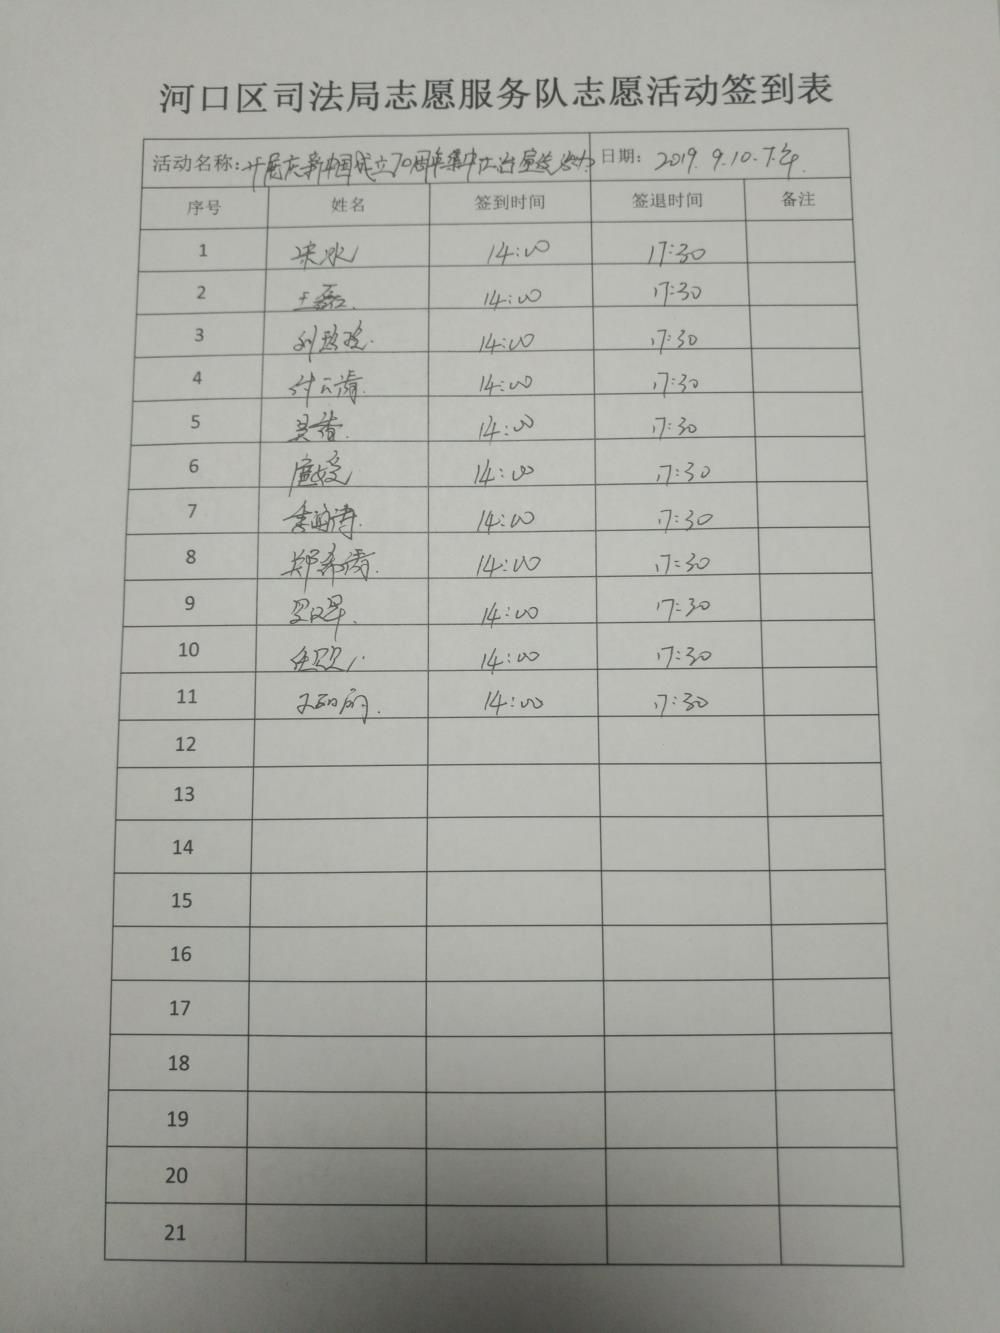 河口区司法局志愿服务队志愿活动签到表
活动名称:开展庆新中国成立70周年集中法治宣传活动 日期: 2019.9.10.下午
序号 姓名 签到时间 签退时间 备注
1 14:00 17:30
2 王磊 14:00 17:30
3 14:00 17:30
4 付云清 14:00 17:30
5 14:00 17:30
6 14:00 17:30
7 14:00 17:30
8 郑希清 14:00 17:30
9 14:00 17:30
10 14:00 17:30
11 14:00 17:30
12
13
14
15
16
17
18
19
20
21